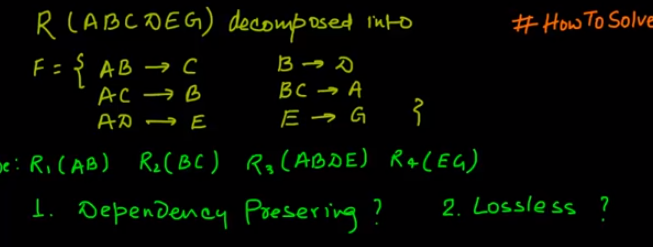 R (ABCDEG) decomposed into # How To Solve
F = { AB → C B → D
AC → B BC → A
AD → E E → G }
R₁(AB) R₂(BC) R₃(ABDE) R₄(EG)
1. Dependency Presering ? 2. Lossless ?